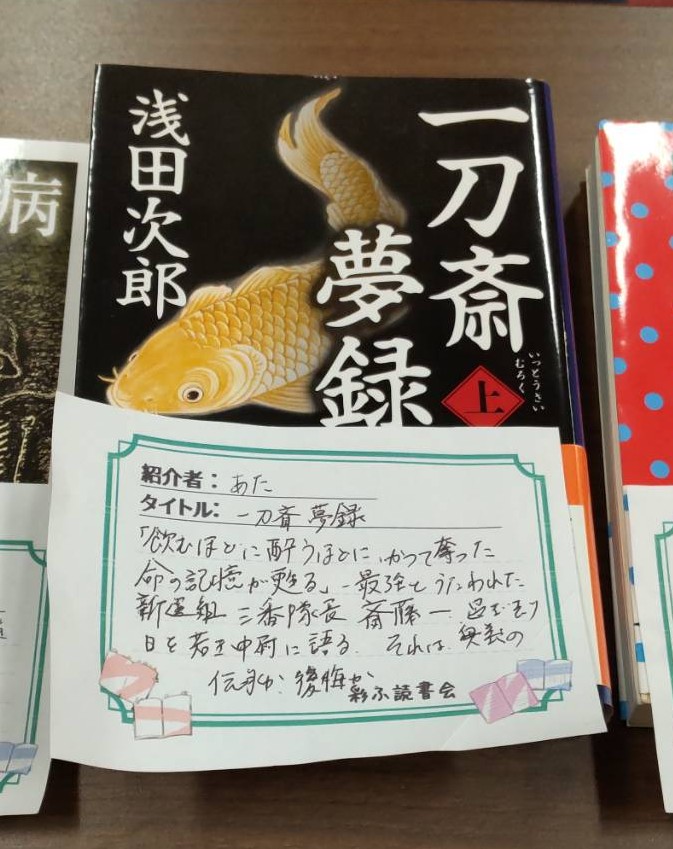 一刀斎
夢録
いっとうさい
むろく
上
浅田次郎
病
紹介者：あた
タイトル：一刀斎 夢録
「飲むほどに酔うほどに、かつて奪った
命の記憶が甦る」－最強とうたわれた
新選組 三番隊長 斎藤一. 過ぎ去り
日を若き中尉に語る. それは、奥義の
伝承か、後悔か
彩ふ読書会